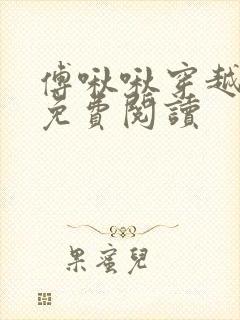 傅啾啾穿越
免費閱讀
果蜜兒